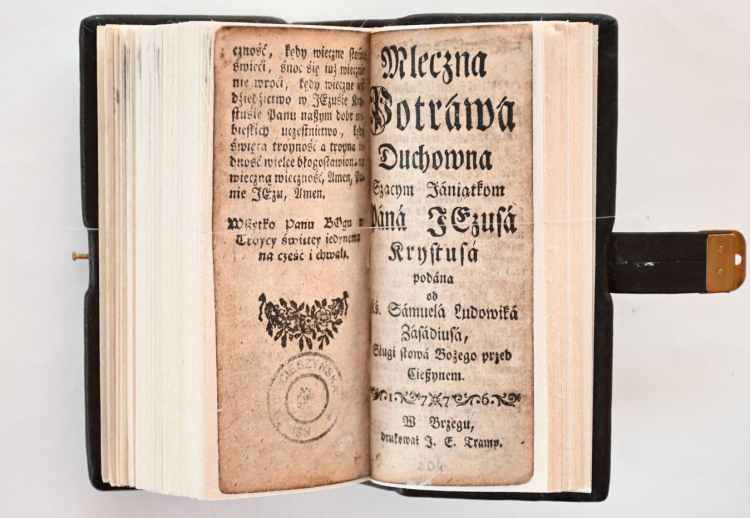 czność, kędy wieczne słońce
świeci, snoc się iuż wiecznie
nie wroci, kędy wieczne
dziedzictwo w JEzusie Kry-
stusie Panu naszym dobr
bieskich uczestnictwo, kędy
święta troyność a troyna
dność wielce błogosławiona na
wieczną wieczność, Amen, Pa-
nie JEzu, Amen.
Wszytko Panu BOgu w
Troycy świętey jedynemu
na cześć i chwałę.
CIESZYŃSKA
Mleczna
Potráwá
Duchowna
Szącym Jániątkom
Páná JEzusá
Krystusá
podána
od
Sámuelá Ludowiká
Zásádiusá,
Sługi słowá Bożego przed
Cieszynem.
1776
W Brzegu,
drukował J. E. Tramp.
204